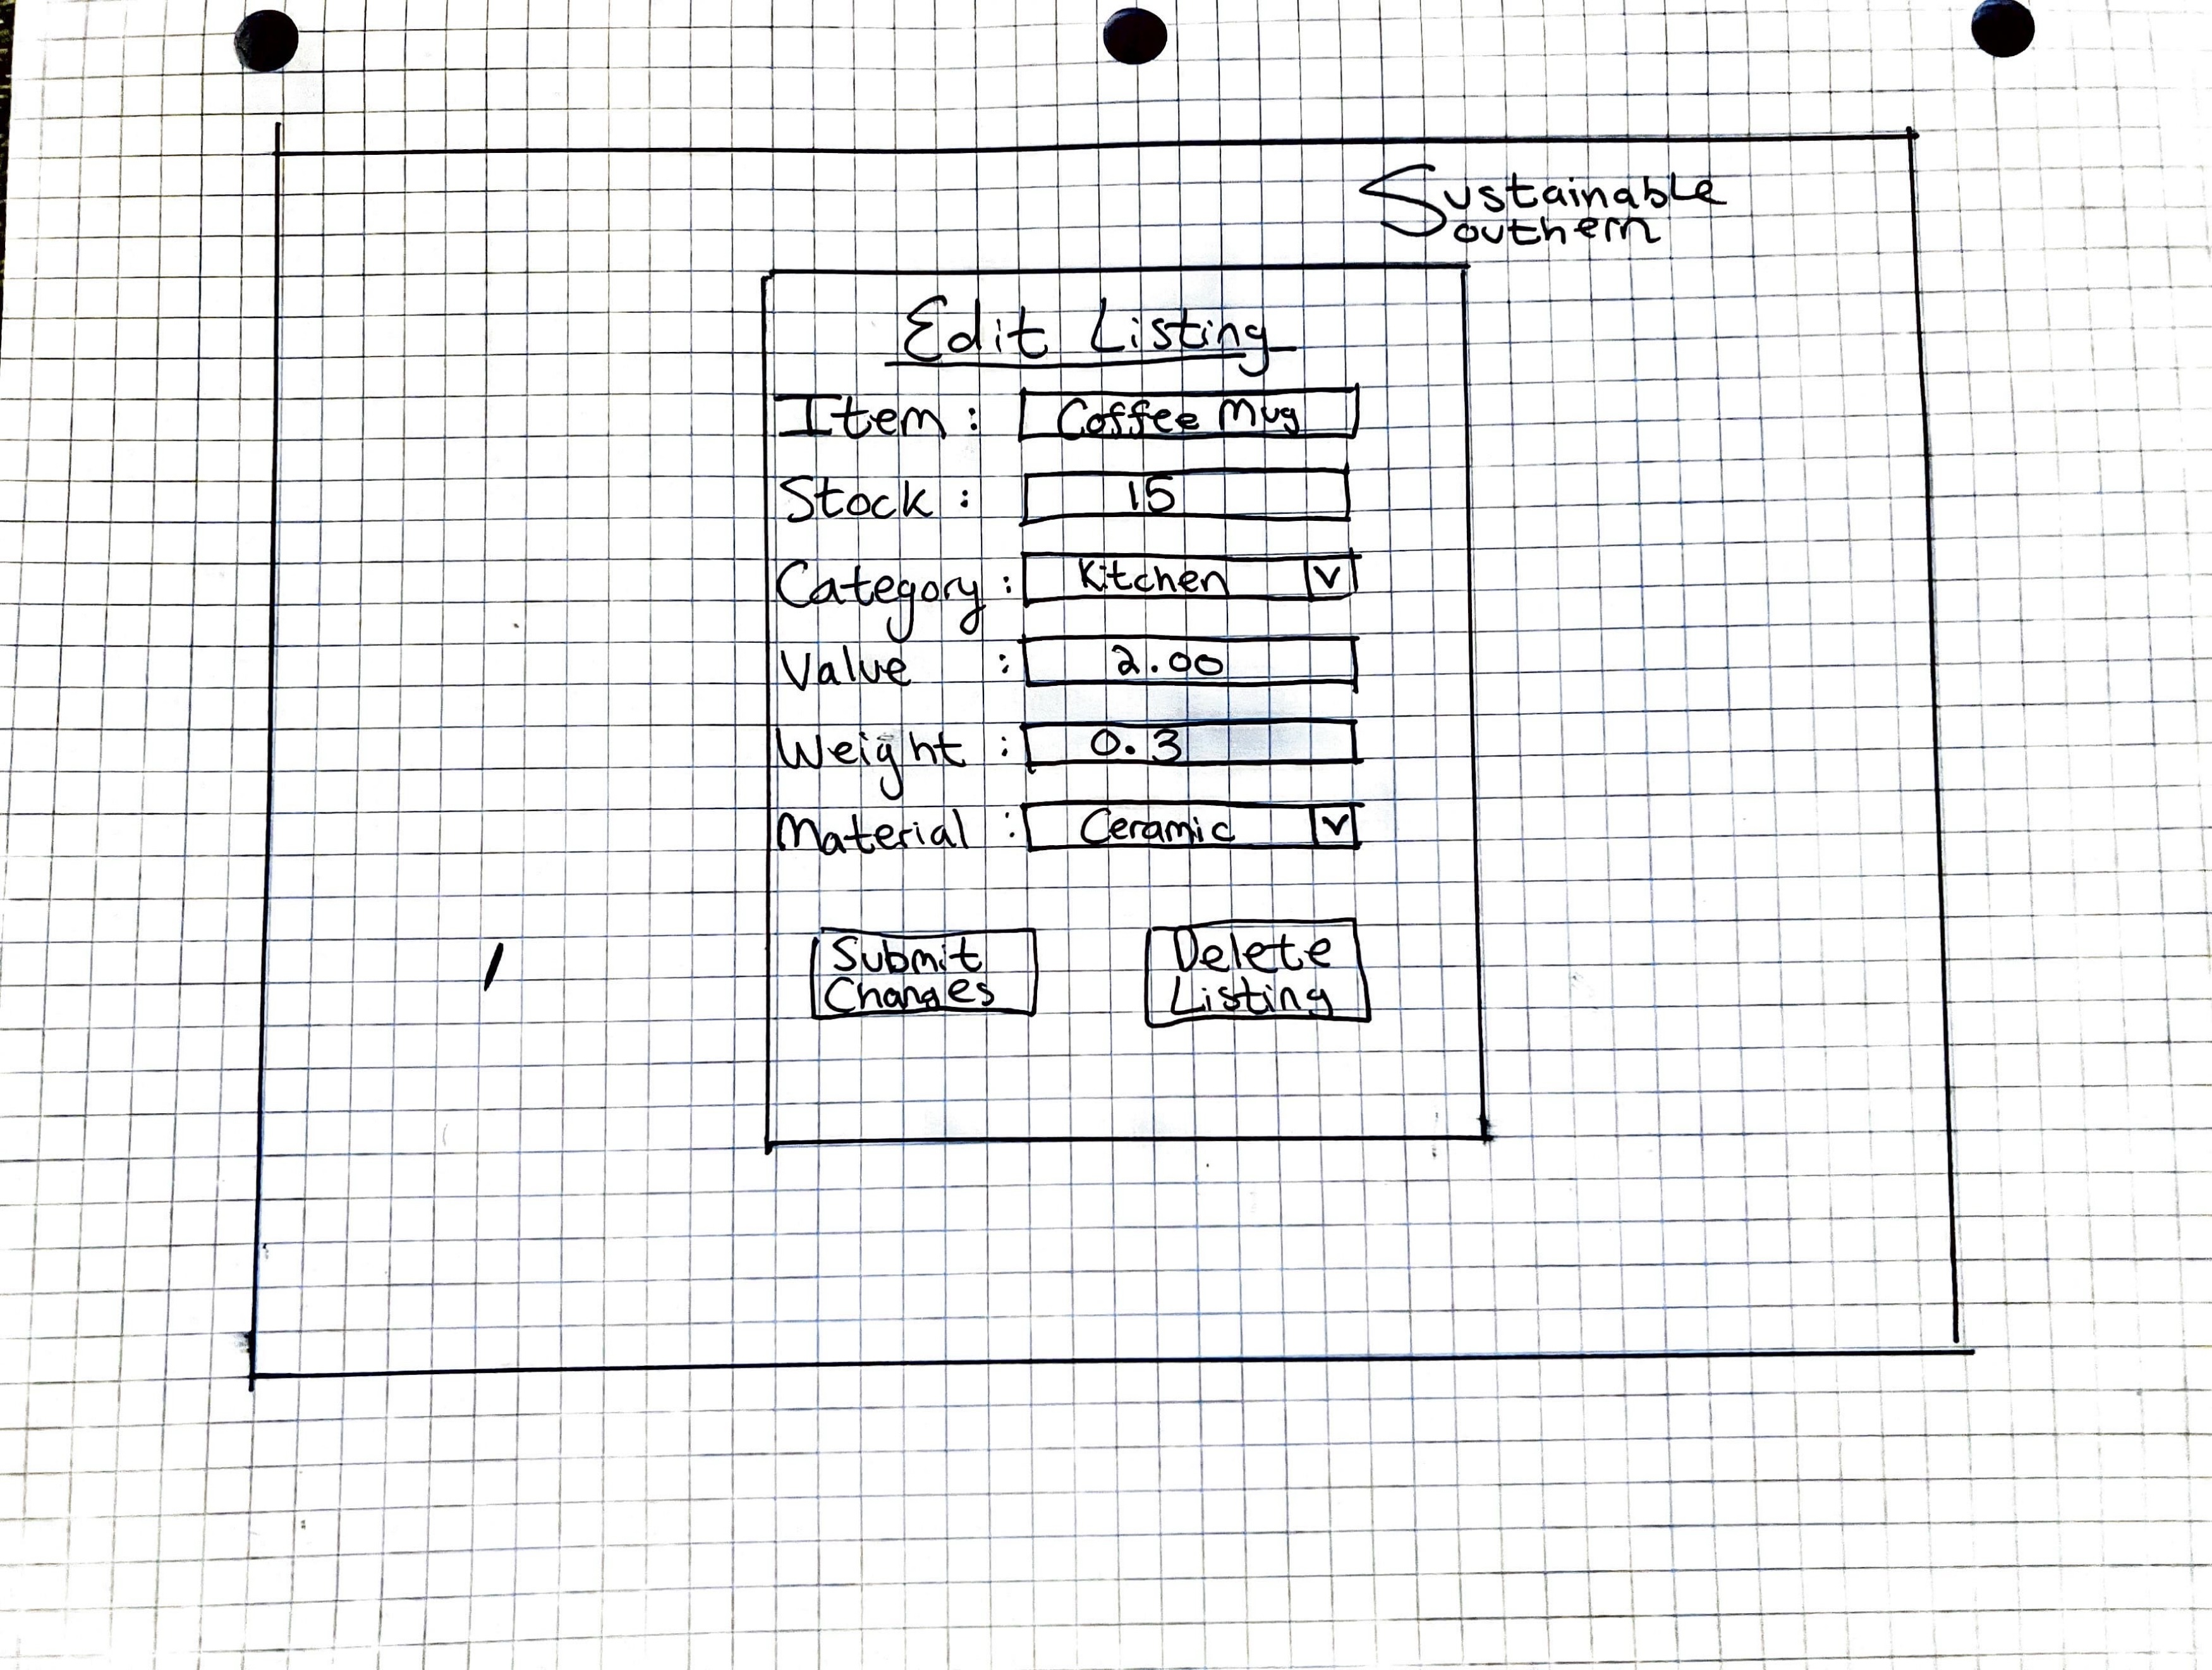 Sustainable
Southern
Edit Listing
Item : Coffee Mug
Stock : 15
Category : Kitchen V
Value : 2.00
Weight : 0.3
Material : Ceramic V
Submit
Changes
Delete
Listing